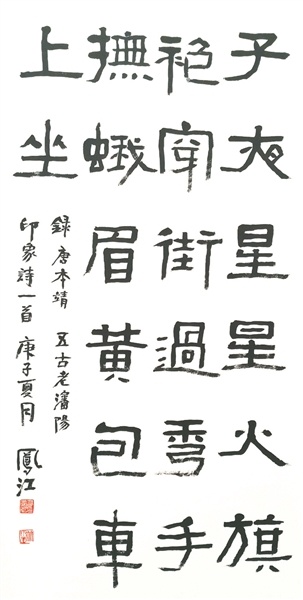 子夜星星火旗
袍穿街過秀手
撫蛾眉黄包車
上坐
録唐本靖 五古老瀋陽
印象詩一首 庚子夏月 鳳江